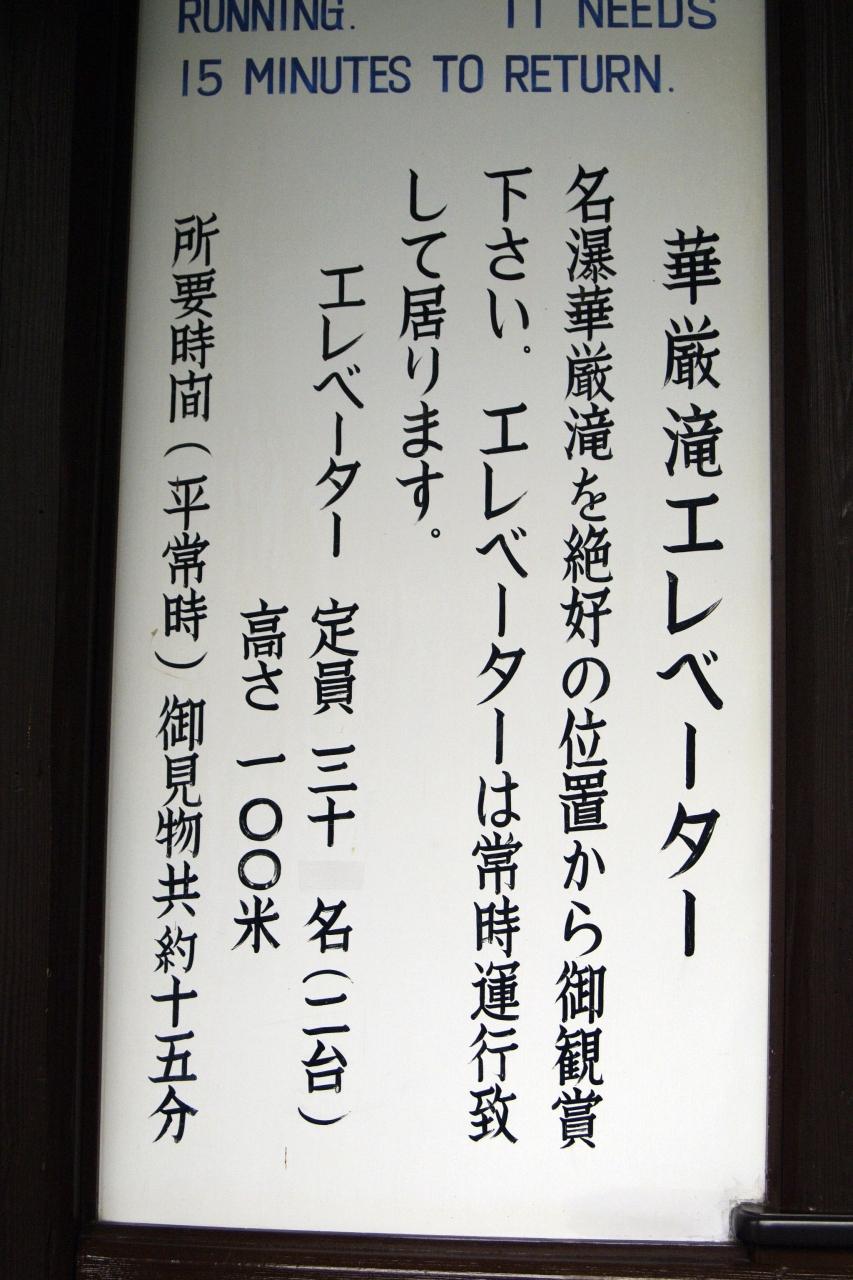 RUNNING. IT NEEDS
15 MINUTES TO RETURN.
華厳滝エレベーター
名瀑華厳滝を絶好の位置から御観賞
下さい。エレベーターは常時運行致
して居ります。
エレベーター 定員 三十 名(二台)
高さ 一〇〇米
所要時間(平常時)御見物共約十五分